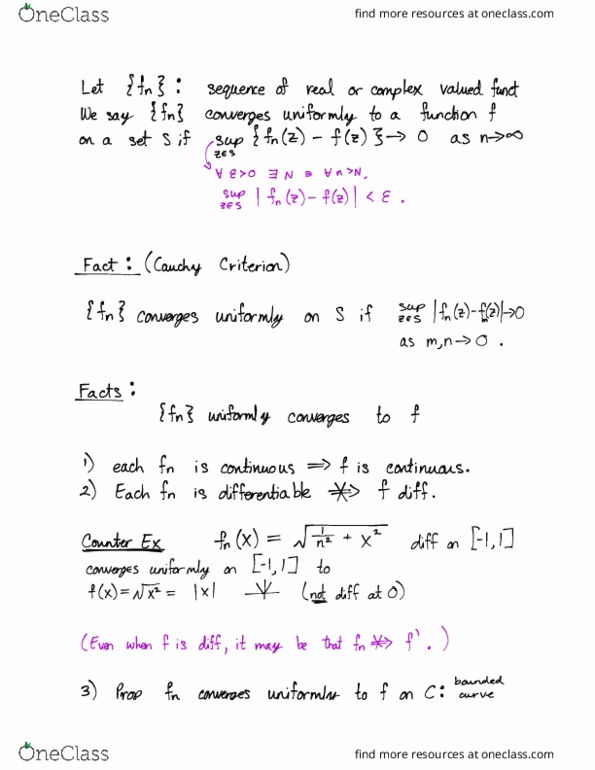 OneClass
find more resources at oneclass.com
Let {fn}: sequence of real or complex valued funct
We say {fn} converges uniformly to a function f
on a set S if sup z∈S {fn(z) - f(z)} → 0 as n→∞
∀ ε>0 ∃ N ∋ ∀ n>N,
sup z∈S |fn(z) - f(z)| < ε.
Fact: (Cauchy Criterion)
{fn} converges uniformly on S if sup z∈S |fn(z) - fm(z)| → 0
as m,n → 0.
Facts:
{fn} uniformly converges to f
1) each fn is continuous ⟹ f is continuous.
2) Each fn is differentiable ⇏ f diff.
Counter Ex fn(x) = √(1/n² + x²) diff on [-1,1]
converges uniformly on [-1,1] to
f(x) = √x² = |x| (not diff at 0)
(Even when f is diff, it may be that fn ⇏ f'.)
3) Prop fn converges uniformly to f on C: bounded curve
OneClass
find more resources at oneclass.com